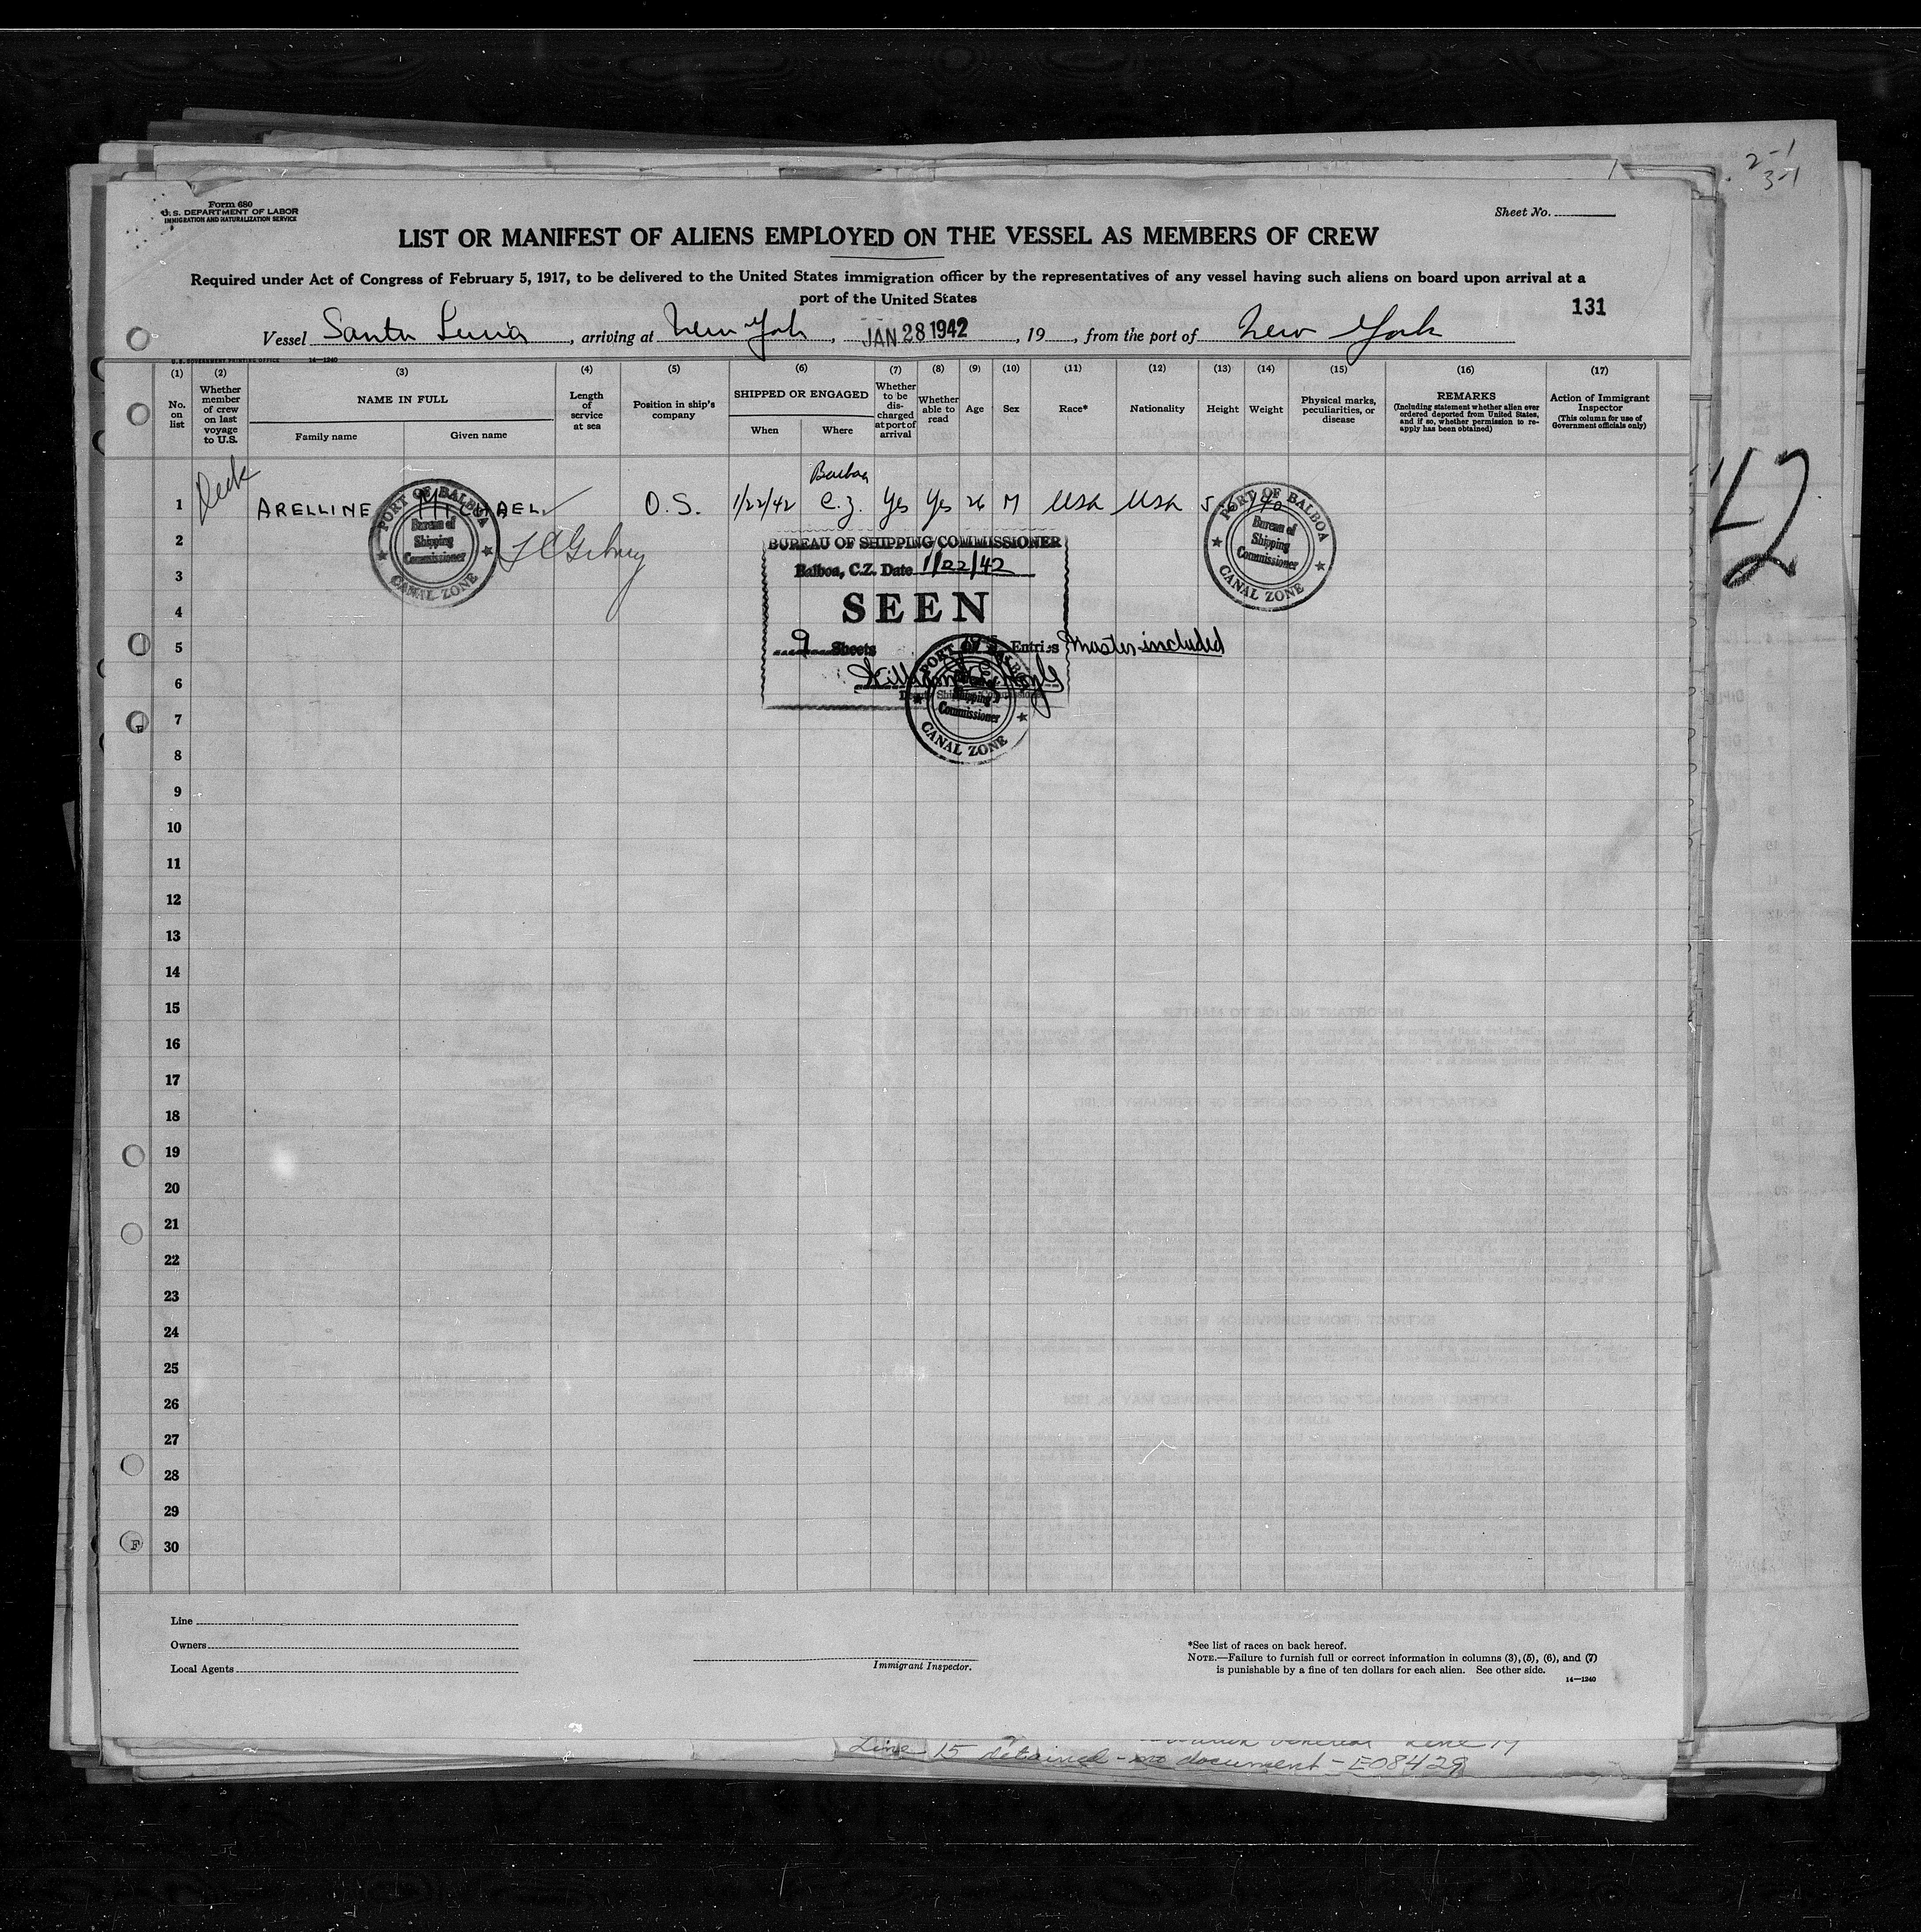 2-1
3-1
Form 680
U. S. DEPARTMENT OF LABOR
IMMIGRATION AND NATURALIZATION SERVICE
Sheet No.
LIST OR MANIFEST OF ALIENS EMPLOYED ON THE VESSEL AS MEMBERS OF CREW
Required under Act of Congress of February 5, 1917, to be delivered to the United States immigration officer by the representatives of any vessel having such aliens on board upon arrival at a
port of the United States
131
Vessel Santa Lucia, arriving at New York, JAN 28 1942, 19, from the port of New York
U. S. GOVERNMENT PRINTING OFFICE 14—1240
(1) (2) (3) (4) (5) (6) (7) (8) (9) (10) (11) (12) (13) (14) (15) (16) (17)
No. on list
Whether member of crew on last voyage to U.S.
NAME IN FULL
Family name Given name
Length of service at sea
Position in ship's company
SHIPPED OR ENGAGED
When Where
Whether to be discharged at port of arrival
Whether able to read
Age
Sex
Race*
Nationality
Height
Weight
Physical marks, peculiarities, or disease
REMARKS
(Including statement whether alien ever ordered deported from United States, and if so, whether permission to reapply has been obtained)
Action of Immigrant Inspector
(This column for use of Government officials only)
Deck
Balboa
1 ARELLINE MICHAEL O.S. 1/22/42 C.Z. Yes Yes 26 M USA USA 5 6 140
PORT OF BALBOA
Bureau of
Shipping
Commissioner
CANAL ZONE
PORT OF BALBOA
Bureau of
Shipping
Commissioner
CANAL ZONE
BUREAU OF SHIPPING COMMISSIONER
Balboa, C.Z. Date 1/22/42
SEEN
9 Sheets Entries Master included
PORT OF BALBOA
Shipping
Commissioner
CANAL ZONE
2
3
4
5
6
7
8
9
10
11
12
13
14
15
16
17
18
19
20
21
22
23
24
25
26
27
28
29
30
42
Line
Owners
Local Agents
Immigrant Inspector.
*See list of races on back hereof.
NOTE.—Failure to furnish full or correct information in columns (3), (5), (6), and (7)
is punishable by a fine of ten dollars for each alien. See other side.
14—1240
Line 15 detained - no document - E08429